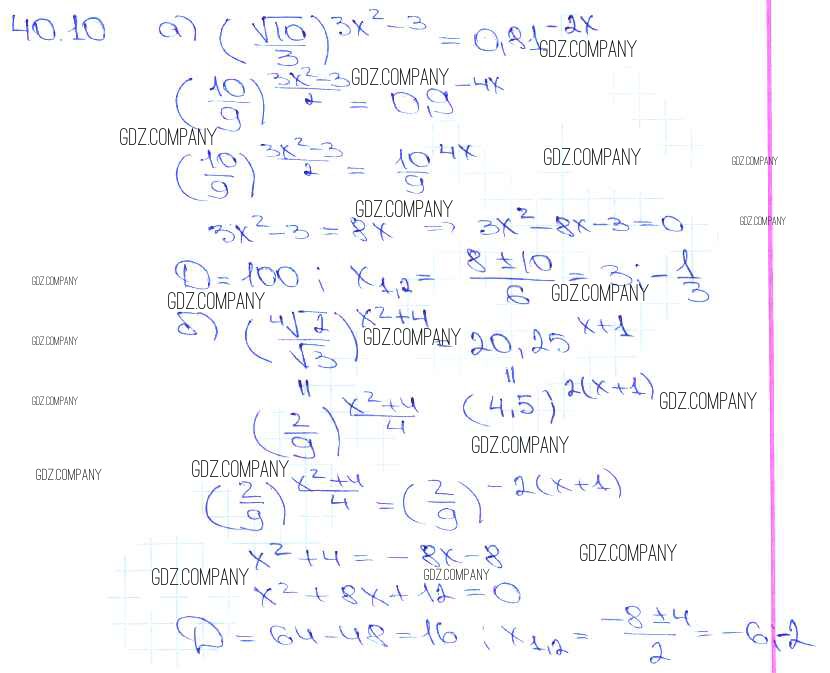 40.10 а) (√10/3)^(3x²-3) = 0,81^(-2x)
GDZ.COMPANY
(10/9)^((3x²-3)/2) = 0,9^(-4x)
GDZ.COMPANY
GDZ.COMPANY
(10/9)^((3x²-3)/2) = 10/9^(4x)
GDZ.COMPANY GDZ.COMPANY
GDZ.COMPANY
3x²-3 = 8x => 3x²-8x-3=0
GDZ.COMPANY
D=100 ; x1,2 = (8±10)/6 = 3; -1/3
GDZ.COMPANY GDZ.COMPANY GDZ.COMPANY
б) (⁴√2/√3)^(x²+4) = 20,25^(x+1)
GDZ.COMPANY GDZ.COMPANY
= =
(2/9)^((x²+4)/4) (4,5)^(2(x+1))
GDZ.COMPANY GDZ.COMPANY
GDZ.COMPANY
GDZ.COMPANY GDZ.COMPANY
(2/9)^((x²+4)/4) = (2/9)^(-2(x+1))
x²+4 = -8x-8
GDZ.COMPANY
GDZ.COMPANY GDZ.COMPANY
x²+8x+12=0
D = 64-48=16 ; x1,2 = (-8±4)/2 = -6;-2